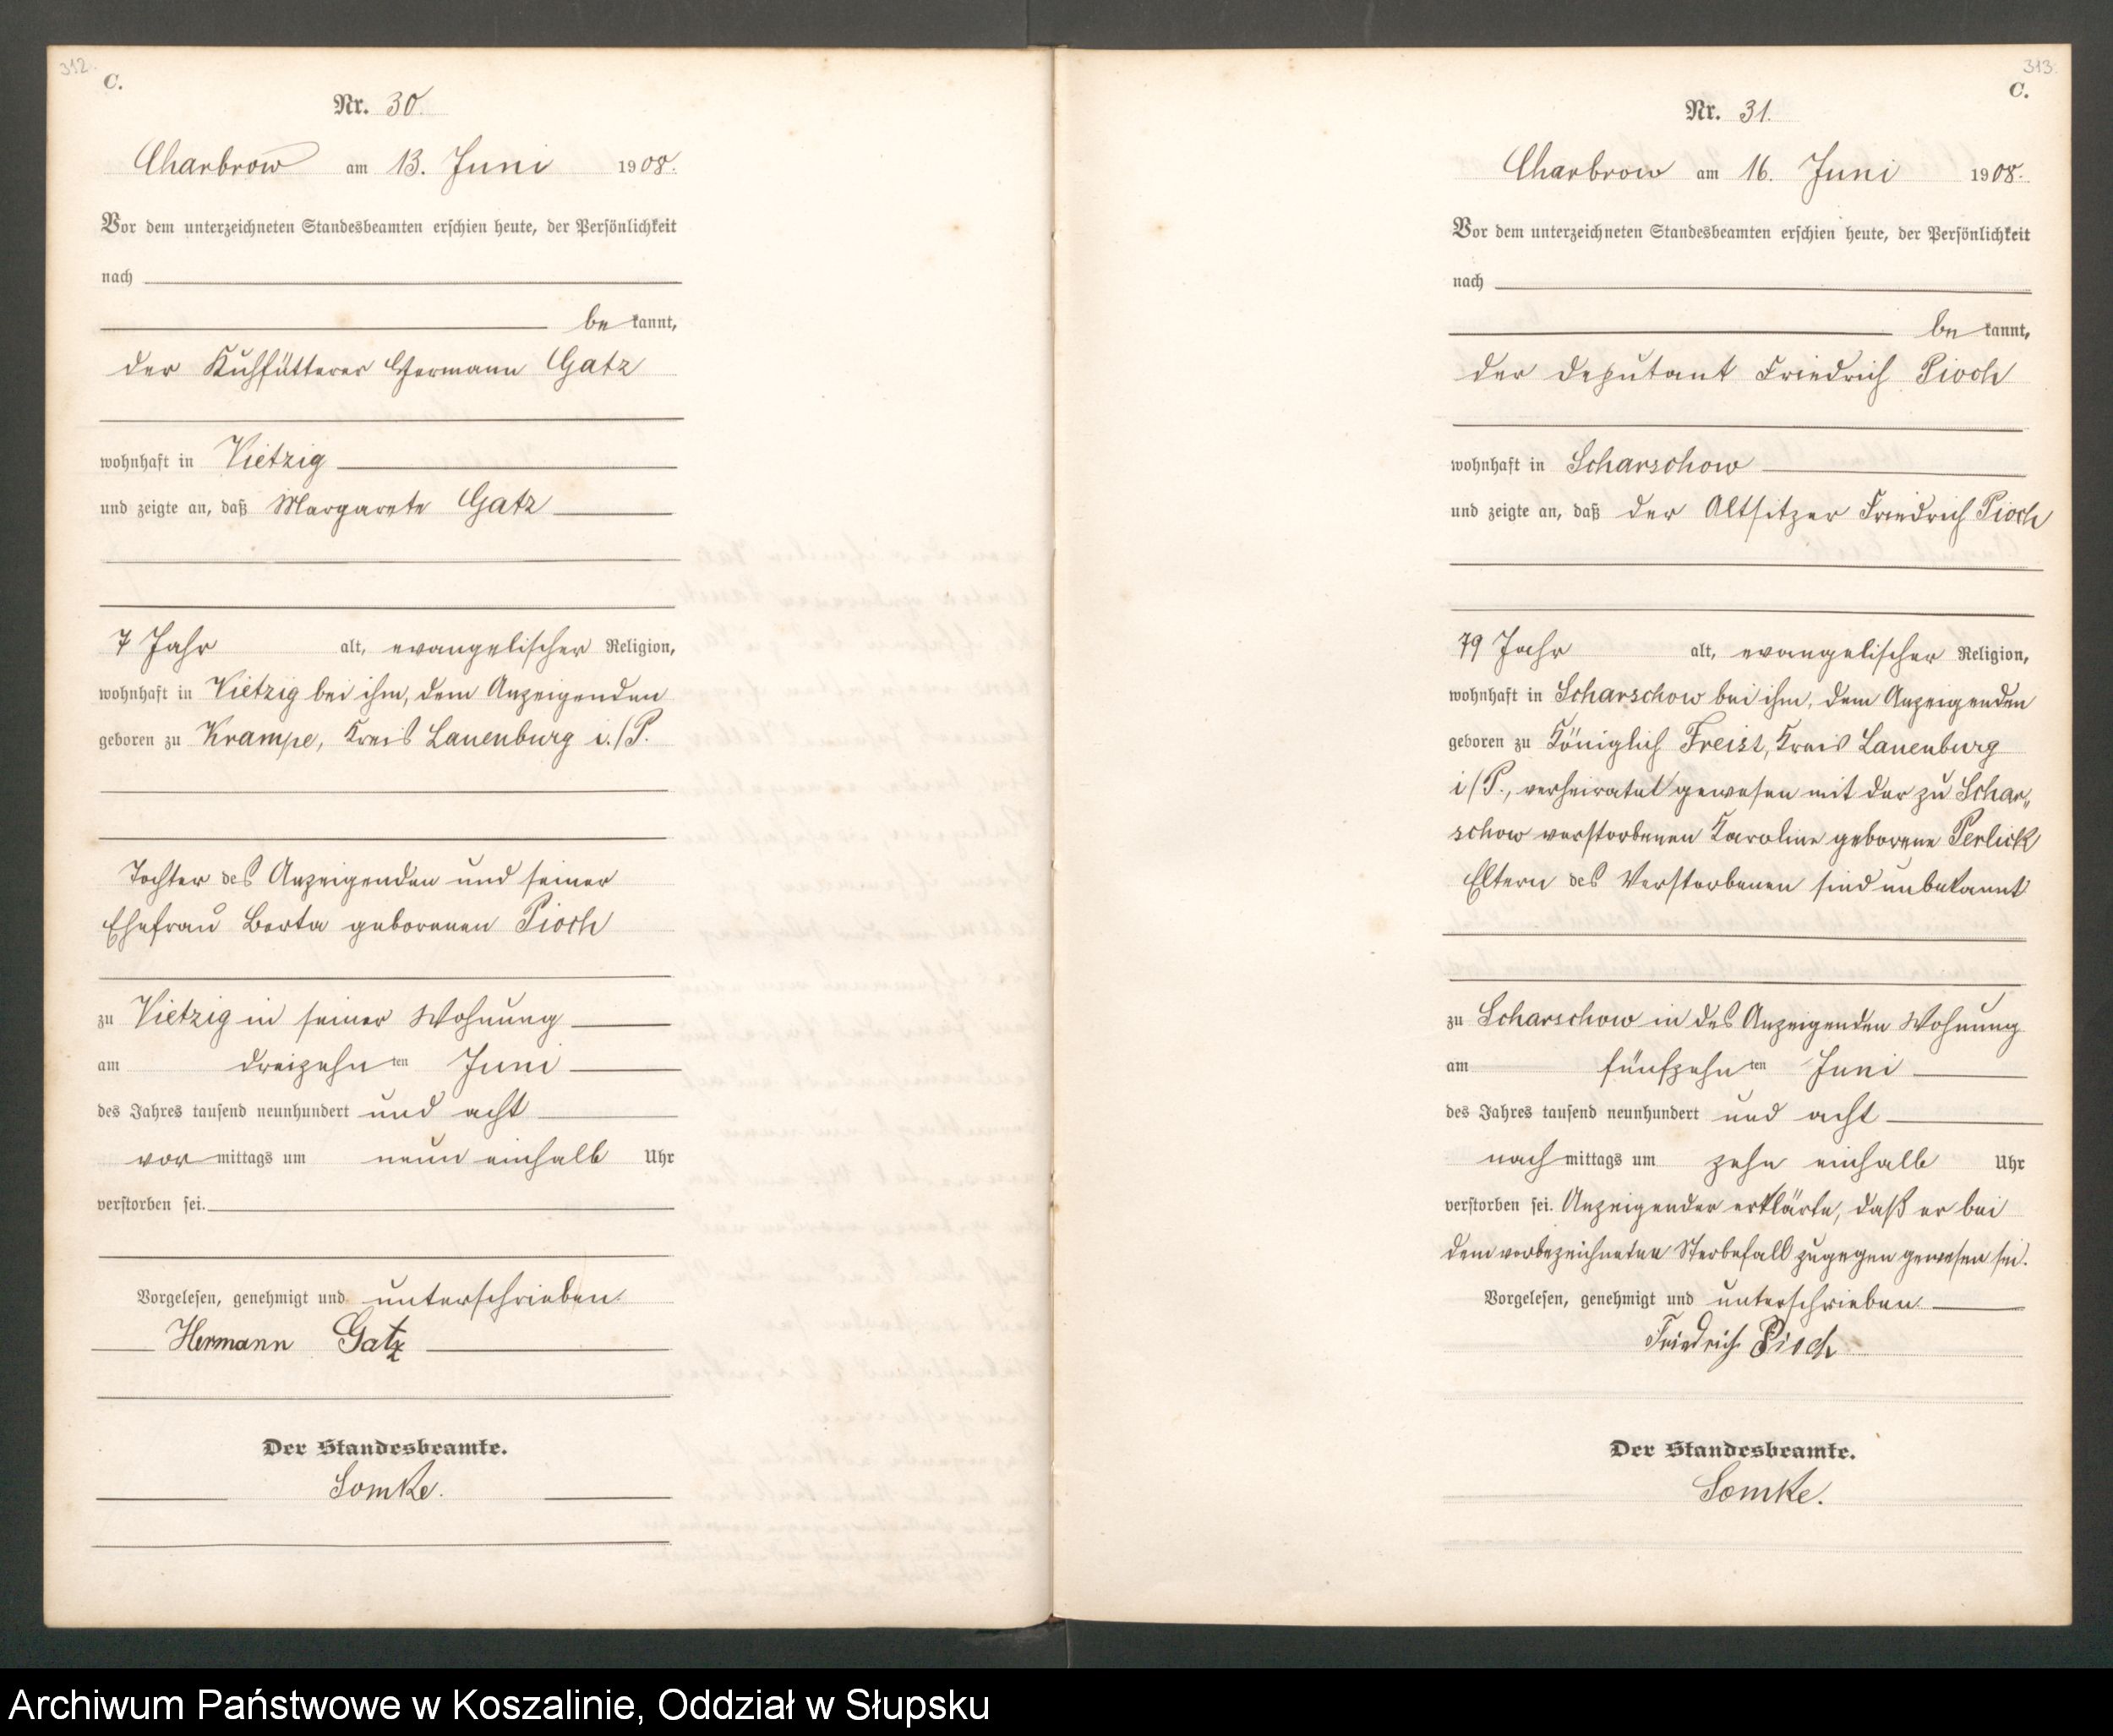 312.
C.
Nr. 30.
Charbrow am 13. Juni 1908.
Vor dem unterzeichneten Standesbeamten erschien heute, der Persönlichkeit
nach
be kannt,
der Kuhfütterer Hermann Gatz
wohnhaft in Vietzig
und zeigte an, daß Margarete Gatz
7 Jahr alt, evangelischer Religion,
wohnhaft in Vietzig bei ihm, dem Anzeigenden
geboren zu Krampe, Kreis Lauenburg i./P.
Tochter des Anzeigenden und seiner
Ehefrau Berta geborenen Pioch
zu Vietzig in seiner Wohnung
am dreizehn ten Juni
des Jahres tausend neunhundert und acht
vor mittags um neun einhalb Uhr
verstorben sei.
Vorgelesen, genehmigt und unterschrieben.
Hermann Gatz
Der Standesbeamte.
Somke.
313.
C.
Nr. 31.
Charbrow am 16. Juni 1908.
Vor dem unterzeichneten Standesbeamten erschien heute, der Persönlichkeit
nach
be kannt,
der Deputant Friedrich Pioch
wohnhaft in Scharschow
und zeigte an, daß der Altsitzer Friedrich Pioch
79 Jahr alt, evangelischer Religion,
wohnhaft in Scharschow bei ihm, dem Anzeigenden
geboren zu Königlich Freist, Kreis Lauenburg
i/P., verheiratet gewesen mit der zu Schar„
schow verstorbenen Karoline geborene Perlick
Eltern des Verstorbenen sind unbekannt
zu Scharschow in des Anzeigenden Wohnung
am fünfzehn ten Juni
des Jahres tausend neunhundert und acht
nach mittags um zehn einhalb Uhr
verstorben sei. Anzeigender erklärte, daß er bei
dem vorbezeichneten Sterbefall zugegen gewesen sei.
Vorgelesen, genehmigt und unterschrieben.
Friedrich Pioch
Der Standesbeamte.
Somke.
Archiwum Państwowe w Koszalinie, Oddział w Słupsku